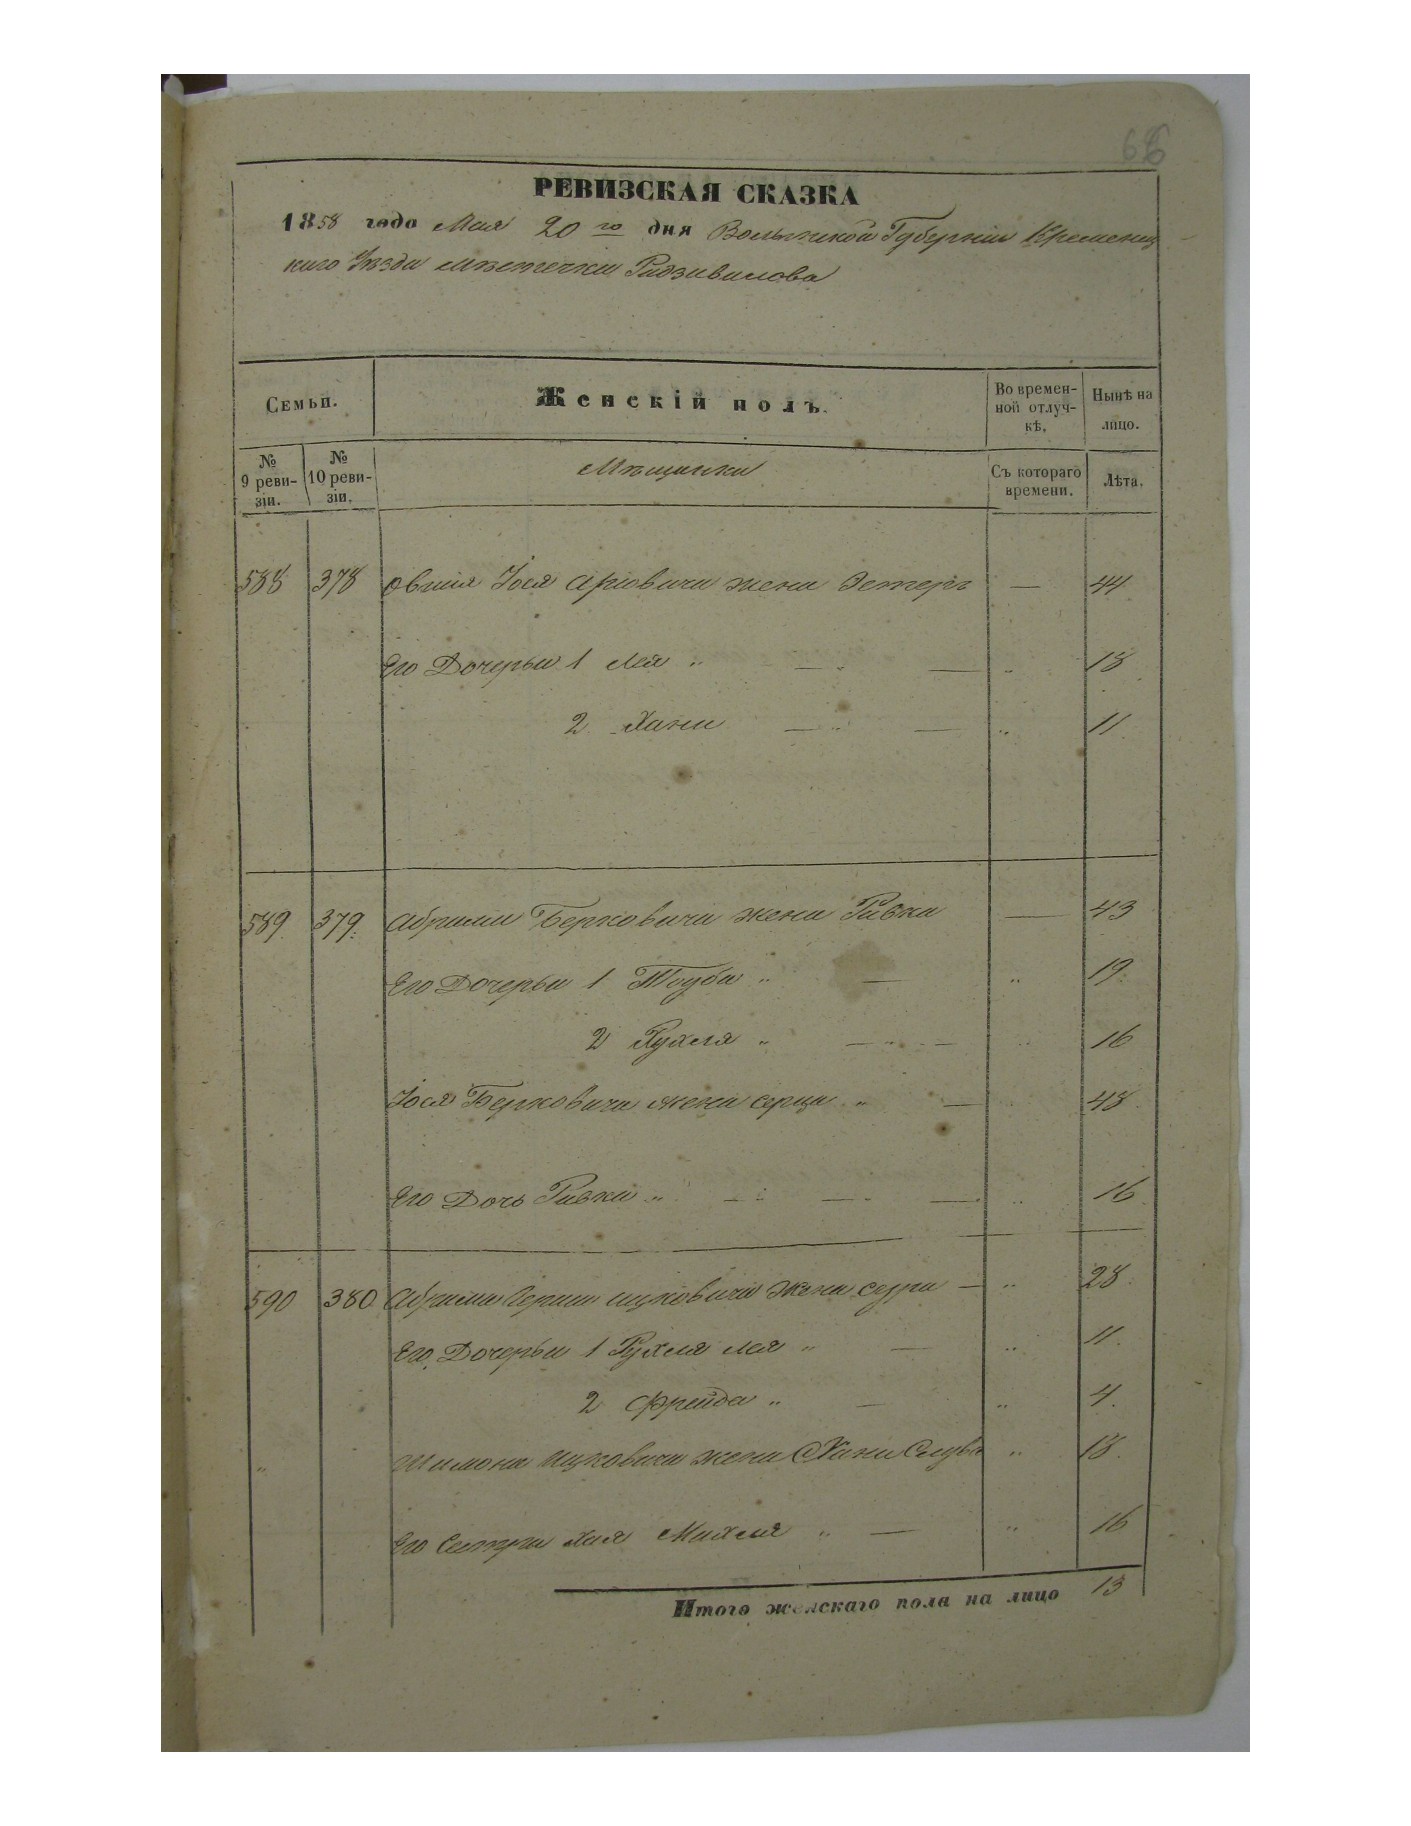 66
РЕВИЗСКАЯ СКАЗКА
1858 года Мая 20го дня Волынской Губернии Кременец
каго Уезда местечка Радзивилова
Семьи.
Женскій полъ.
Во времен-
ной отлуч-
кѣ.
Нынѣ на
лицо.
№
9 реви-
зіи.
№
10 реви-
зіи.
Мѣщанки
Съ котораго
времени.
Лѣта.
588 378 Овшія Іося Аріовича жена Эстеръ — 44
Его Дочерьи 1 Лея " — " — " 18
2 Хана — " — " 11
589 379. Абрама Берковича жена Ривка — 43
Его Дочерьи 1 Тоуба " — " 19.
2 Рухля " — " — " 16
Іося Берковича жена Серца " — " 48
Его Дочь Ривка " — " — " — " 16
590 380 Абрама Герша Ицковича жена Седра — " 28.
Его Дочерьи 1 Рухля Лея " — " 11.
2 Фрейда " — " 4.
" Шимона Ицковича жена Хана Слува " 18.
Его Сестра Хая Махля " — " 16
Итого женскаго пола на лицо 13